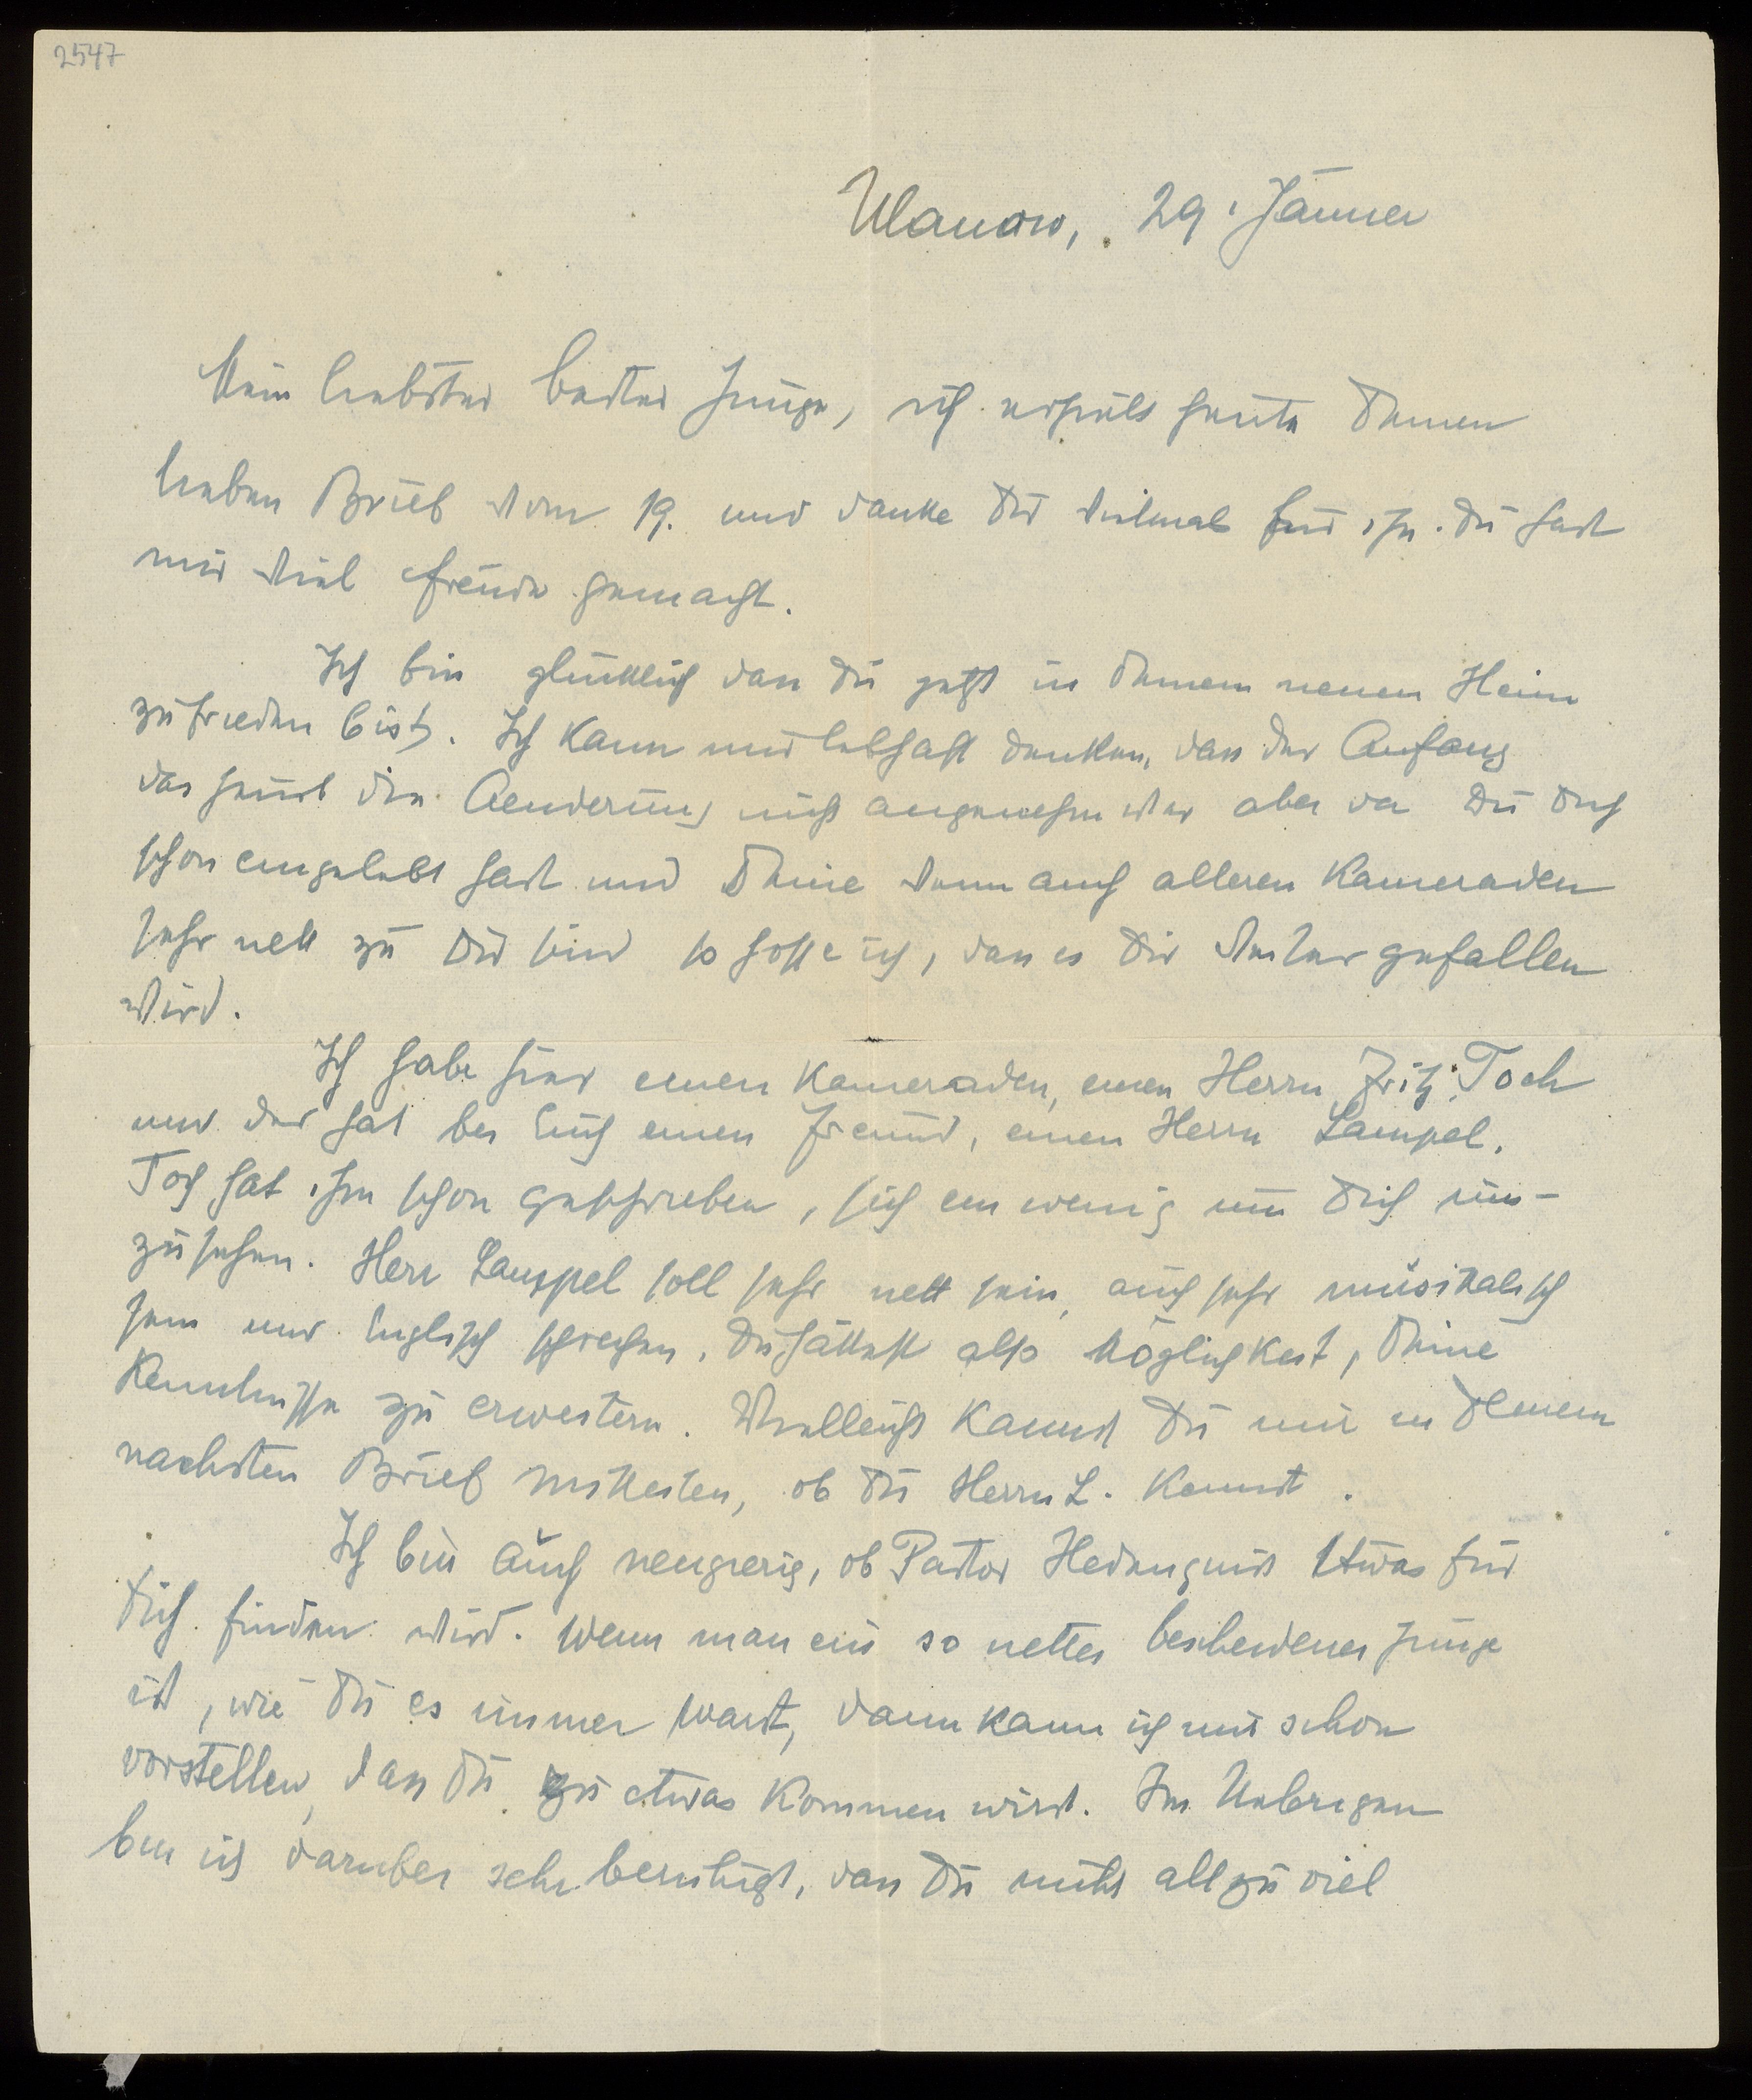 2547
Ulanow, 29. Jänner
Mein liebster bester Junge, ich erhielt heute Deinen
lieben Brief vom 19. und danke Dir vielmals für ihn. Du hast
mir viel Freude gemacht.
Ich bin glücklich dass Du jetzt in Deinem neuen Heim
zufrieden bist. Ich kann mir lebhaft denken, dass der Anfang
das heisst die Aenderung nicht angenehm war aber da Du Dich
schon eingelebt hast und Deine wenn auch älteren Kameraden
sehr nett zu Dir sind so hoffe ich, dass es Dir weiter gefallen
wird.
Ich habe hier einen Kameraden, einen Herrn Fritz Toch
und der hat bei Euch einen Freund, einen Herrn Lampel.
Toch hat ihm schon geschrieben, sich ein wenig um Dich um-
zusehen. Herr Lampel soll sehr nett sein, auch sehr musikalisch
sein und Englisch sprechen. Du hättest also Möglichkeit, Deine
Kenntnisse zu erweitern. Vielleicht kannst Du mir in Deinem
nächsten Brief mitteilen, ob Du Herrn L. kennst.
Ich bin auch neugierig, ob Pastor Hedenquist etwas für
Dich finden wird. Wenn man ein so netter bescheidener Junge
ist, wie Du es immer warst, dann kann ich mir schon
vorstellen, dass Du zu etwas kommen wirst. Im Uebrigen
bin ich darüber sehr beruhigt, dass Du nicht allzu viel